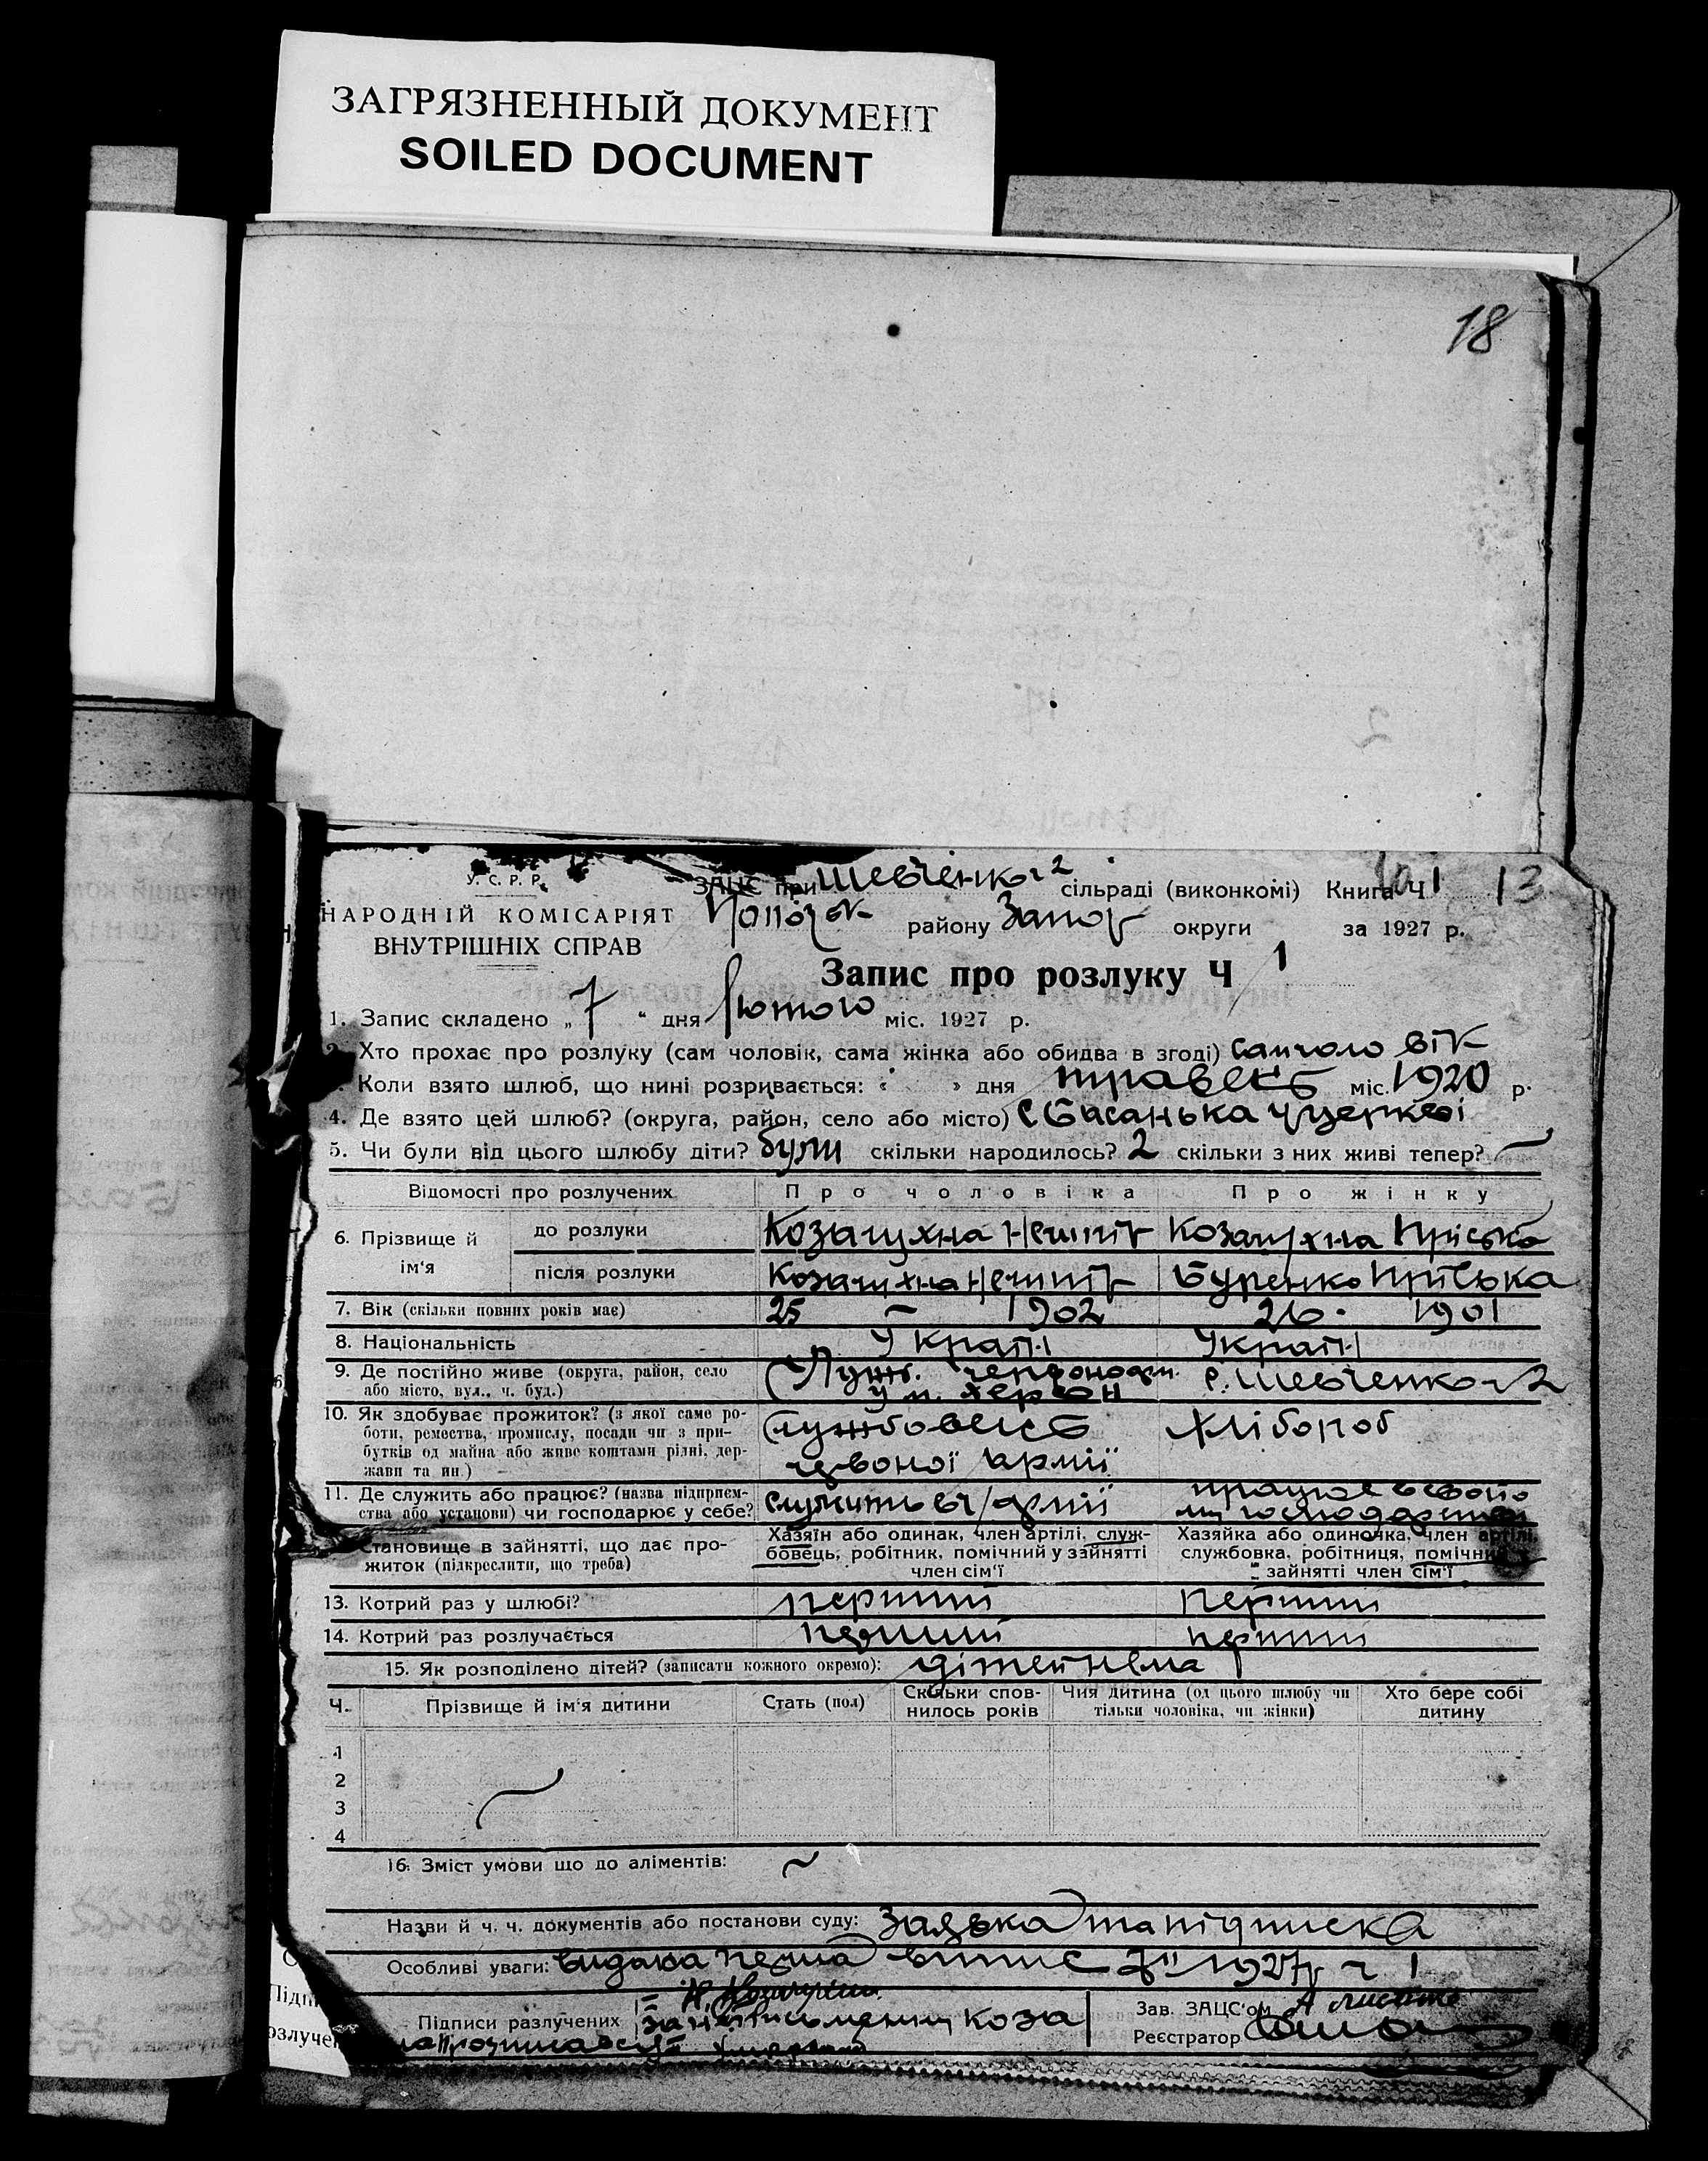 ЗАГРЯЗНЕННЫЙ ДОКУМЕНТ
SOILED DOCUMENT
18
У. С. Р. Р.
НАРОДНІЙ КОМІСАРІЯТ
ВНУТРІШНІХ СПРАВ
ЗАЦС при Шевченков 2 сільраді (виконкомі) Книга Ч 1 13
району Запор округи за 1927 р.
Запис про розлуку Ч 1
1. Запис складено „ 7 “ дня Лютого міс. 1927 р.
2. Хто прохає про розлуку (сам чоловік, сама жінка або обидва в згоді) Сам чоло вік
Коли взято шлюб, що нині розривається: « » дня травень міс. 1920 р.
4. Де взято цей шлюб? (округа, район, село або місто) с Басанька у церкві
5. Чи були від цього шлюбу діти? були скільки народилось? 2 скільки з них живі тепер? —
Відомості про розлучених Про чоловіка Про жінку
6. Прізвище й ім‘я до розлуки Козачухна Нечипір Козачухна Пріська
після розлуки Козачухна Нечипір Буренко Пріська
7. Вік (скільки повних років має) 25 — 1902 26. 1901
8. Національність Україн Україн
9. Де постійно живе (округа, район, село або місто, вул., ч. буд.) у м. Херсон с. Шевченков 2
10. Як здобуває прожиток? (з якої саме роботи, ремества, промислу, посади чи з прибутків од майна або живе коштами рідні, держави та ин.) Службовець червоної армії Хлібороб
11. Де служить або працює? (назва підприємства або установи) чи господарює у себе? служить в ч/армії працює в свойо му господарстві
Становище в зайнятті, що дає прожиток (підкреслити, що треба) Хазяїн або одинак, член артілі, службовець, робітник, помічний у зайнятті член сім'ї Хазяйка або одиночка, член артілі, службовка, робітниця, помічни зайнятті член сім'ї
13. Котрий раз у шлюбі? перший перший
14. Котрий раз розлучається перший перший
15. Як розподілено дітей? (записати кожного окремо): дітей нема
Ч. Прізвище й ім‘я дитини Стать (пол) Скільки сповнилось років Чия дитина (од цього шлюбу чи тільки чоловіка, чи жінки) Хто бере собі дитину
1
2
3
4
16. Зміст умови що до аліментів: ~
Назви й ч. ч. документів або постанови суду: Заявка та підписка
Особливі уваги: видана перша випис 7/II 1927 р ч 1
Підписи разлучених за неписьменну Коза
Зав. ЗАЦС‘ом
Реєстратор